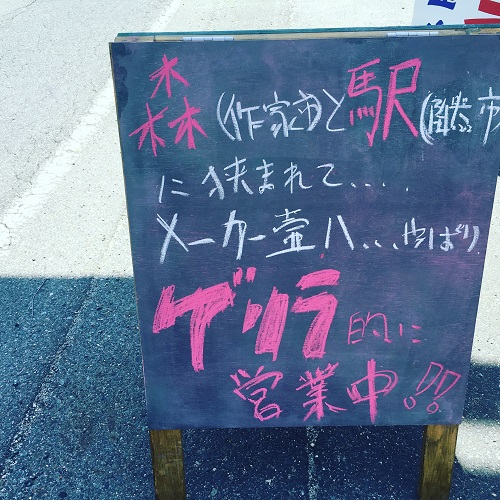 森(作家市)と駅(陶器市
に狭まれて....
メーカー壷八...やっぱり
ゲリラ的に
営業中!!